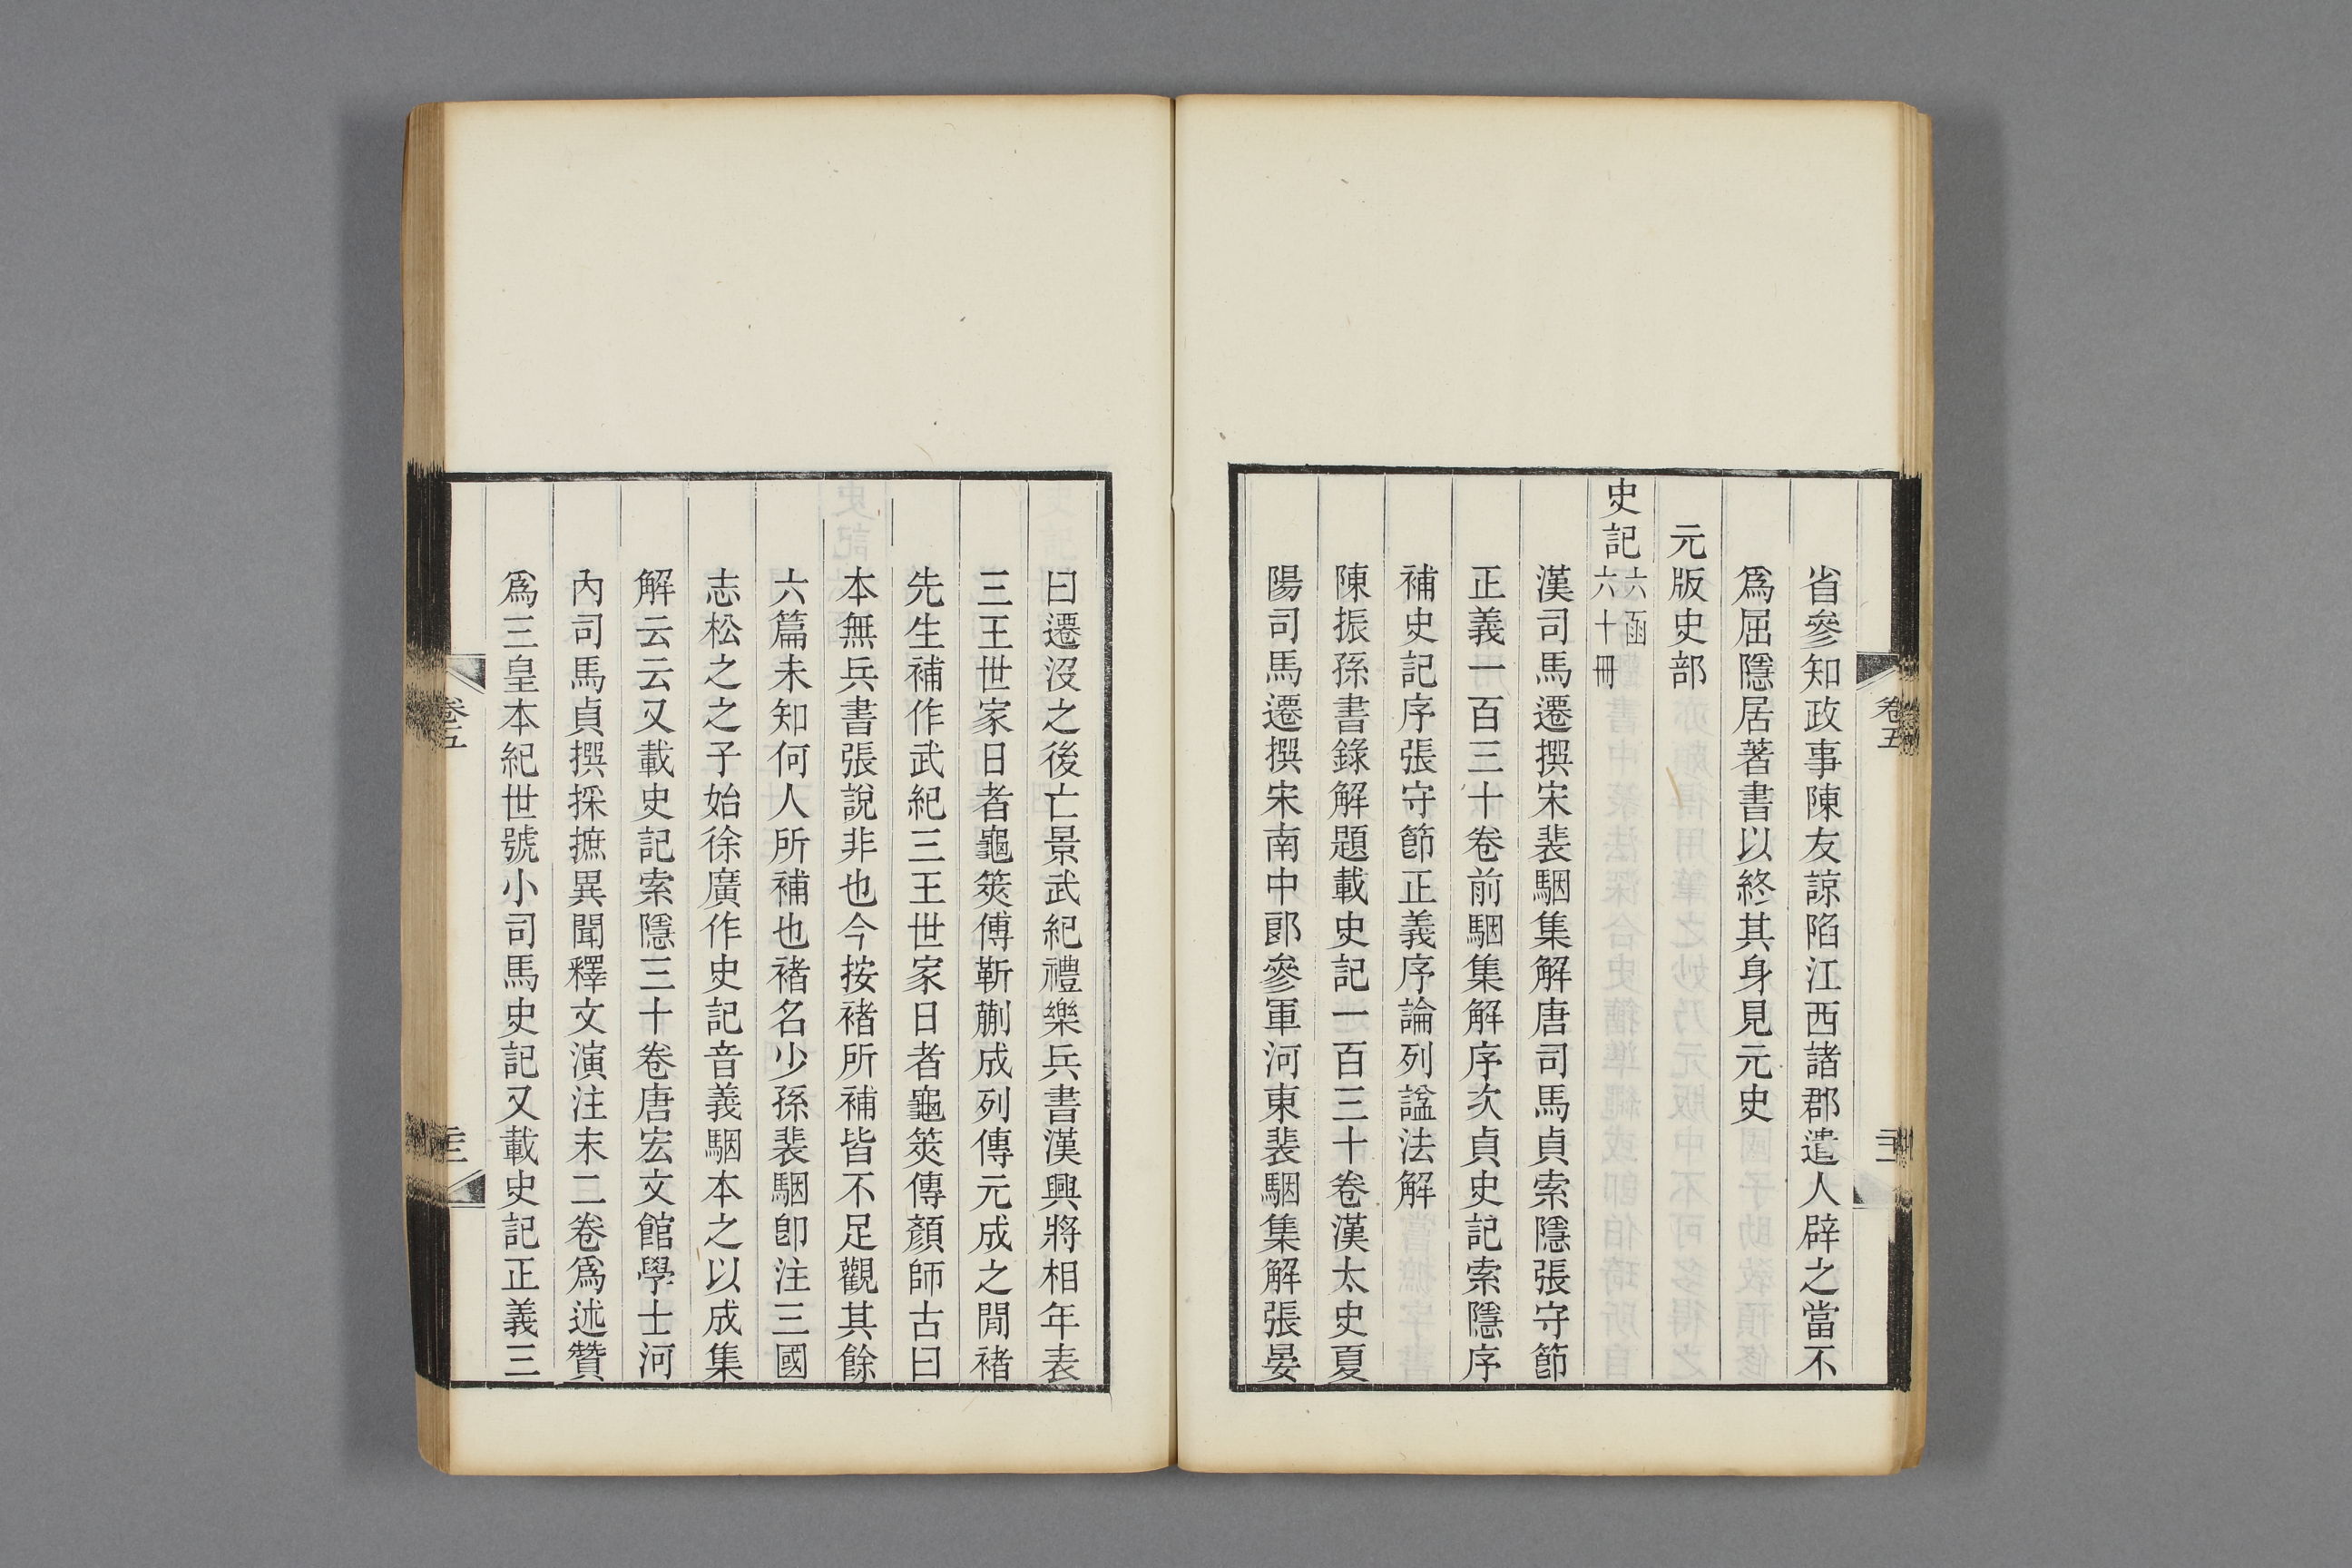 省參知政事陳友諒陷江西諸郡遣人辟之當不
爲屈隱居著書以終其身見元史
元版史部
史記六函六十冊
漢司馬遷撰宋裴駰集解唐司馬貞索隱張守節
正義一百三十卷前駰集解序次貞史記索隱序
補史記序張守節正義序論列諡法解
陳振孫書錄解題載史記一百三十卷漢太史夏
陽司馬遷撰宋南中郎參軍河東裴駰集解張晏
曰遷沒之後亡景武紀禮樂兵書漢興將相年表
三王世家日者龜筴傅靳蒯成列傳元成之閒褚
先生補作武紀三王世家日者龜筴傳顏師古曰
本無兵書張說非也今按褚所補皆不足觀其餘
六篇未知何人所補也褚名少孫裴駰卽注三國
志松之之子始徐廣作史記音義駰本之以成集
解云云又載史記索隱三十卷唐宏文館學士河
內司馬貞撰採摭異聞釋文演注末二卷爲述贊
爲三皇本紀世號小司馬史記又載史記正義三
卷五
卷五